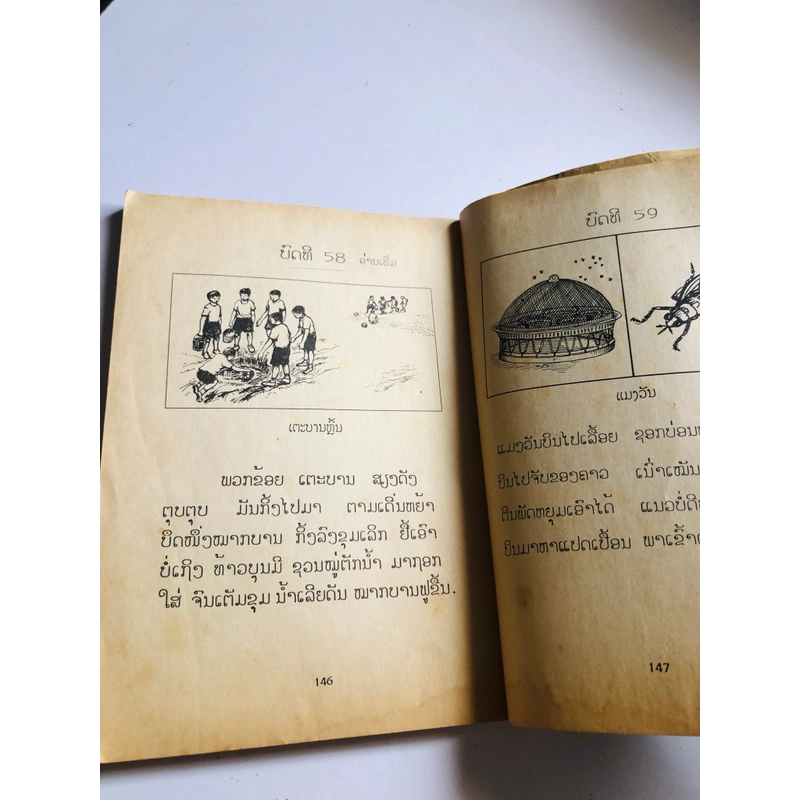 ບົດທີ 58 ອ່ານເພີ່ມ
ເຕະບານຫຼິ້ນ
ພວກຂ້ອຍ ເຕະບານ ສຽງດັງ
ຕຸບຕຸບ ມັນກິ້ງໄປມາ ຕາມເດີ່ນຫຍ້າ
ບຶດໜຶ່ງໝາກບານ ກິ້ງລົງຂຸມເລິກ ຢື້ເອົາ
ບໍ່ເຖິງ ທ້າວບຸນມີ ຊວນໝູ່ຕັກນ້ຳ ມາຖອກ
ໃສ່ ຈົນເຕັມຂຸມ ນ້ຳເລີຍດັນ ໝາກບານຟູຂຶ້ນ.
146
ບົດທີ 59
ແມງວັນ
ແມງວັນບິນໄປເລື້ອຍ ຊອກບ່ອນ
ບິນໄປຈັບຂອງຄາວ ເນົ່າເໝັນ
ຕີນພັດຫຍຸມເອົາໄດ້ ແນວບໍ່ດີ
ບິນມາຫາແປດເປື້ອນ ພາເຂົ້າ
147